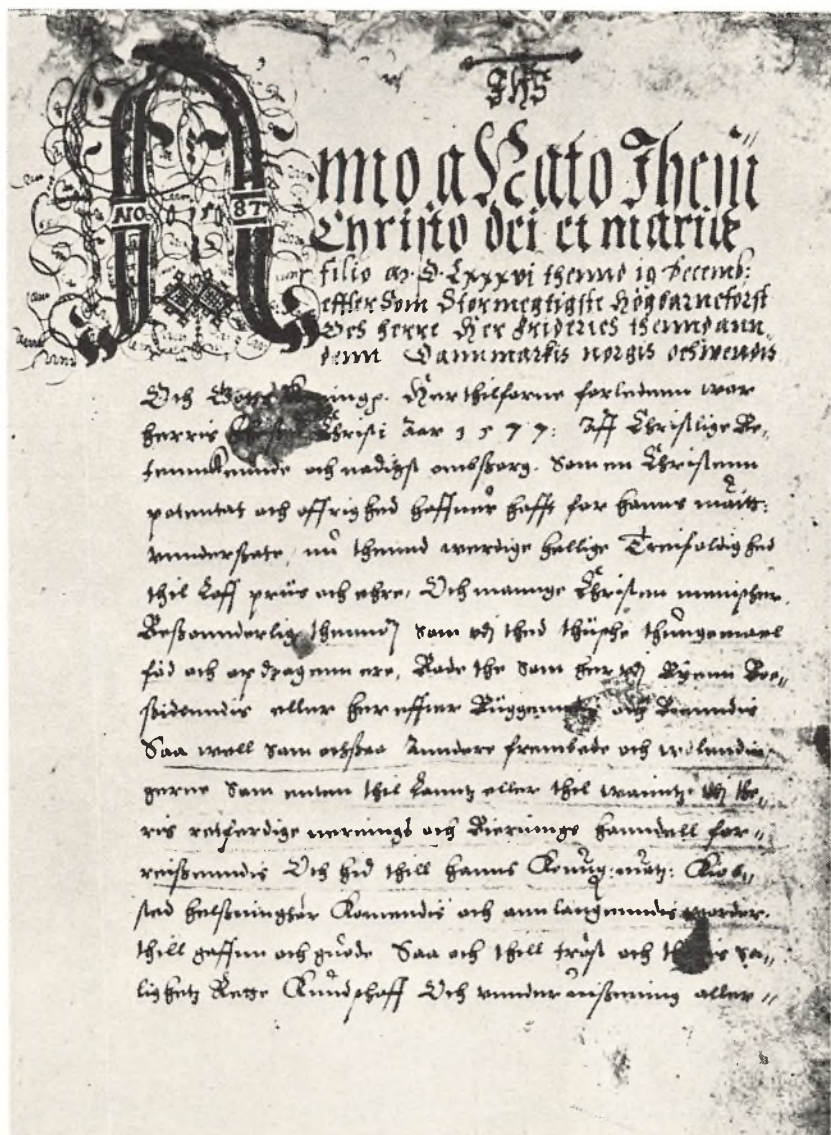 Jhs
Anno a Nato Jhesu
ANO 1587
Christo dei et mariæ
filio M.D.Lxxxvi thennd 19 Decemb:
effter Som Stormegtigste Högbarne först
Och herre Her Friderich thennd ann
denn Dannmarkis norgis och wendis
Och Konningx. Her thilforne forledenn war
herris Christi Aar 1577: Aff Christlige Be,
och nadigst ombsorg. Som en Christenn
potentat och offrighed haffuer hafft for hanns maitt:
vnndersate, nu thennd werdige hellige Treifoldighed
thil Loff priis och ehre, Och mannge Christen menischer
Besonnderlig thennd Som vdj thed thüsche thungemaal
föd och opdragenn ere, Baade the Som her vdj Byenn Boe„
siddendis eller her effter Büggenndis och Boenndis
Saa well Som ochsaa Anndere frembede och
gerne Som enten thil Lanntz eller thil wanntz vdj the„
ris retferdige nerinngs och Biernings hanndell for„
reisenndis Och hid thill hanns Konng: matz: Kiöb„
sted helsninghör Komendis och annlangenndis worder.
thill gaffnn och gode Saa och thill tröst och sa„
lighetz Rette Kundschaff Och vnnderuissning aller„